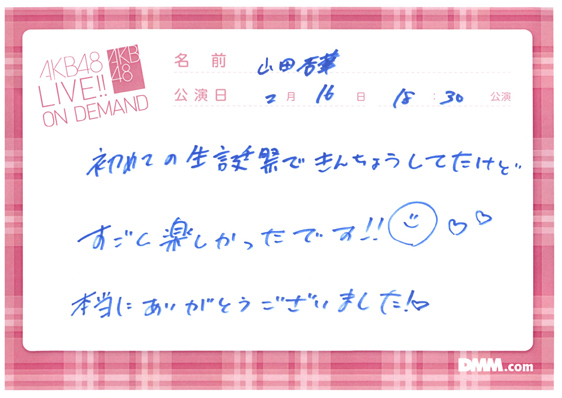 AKB48
LIVE!!
ON DEMAND
AKB
48
名前 山田杏華
公演日 2月16日 18:30 公演
初めての生誕祭できんちょうしてたけど..
すごく楽しかったです!!
本当にありがとうございました!
DMM.com